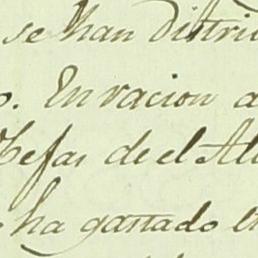 se han distri
o. En racion a
Gefas de el Al
ha gastado e